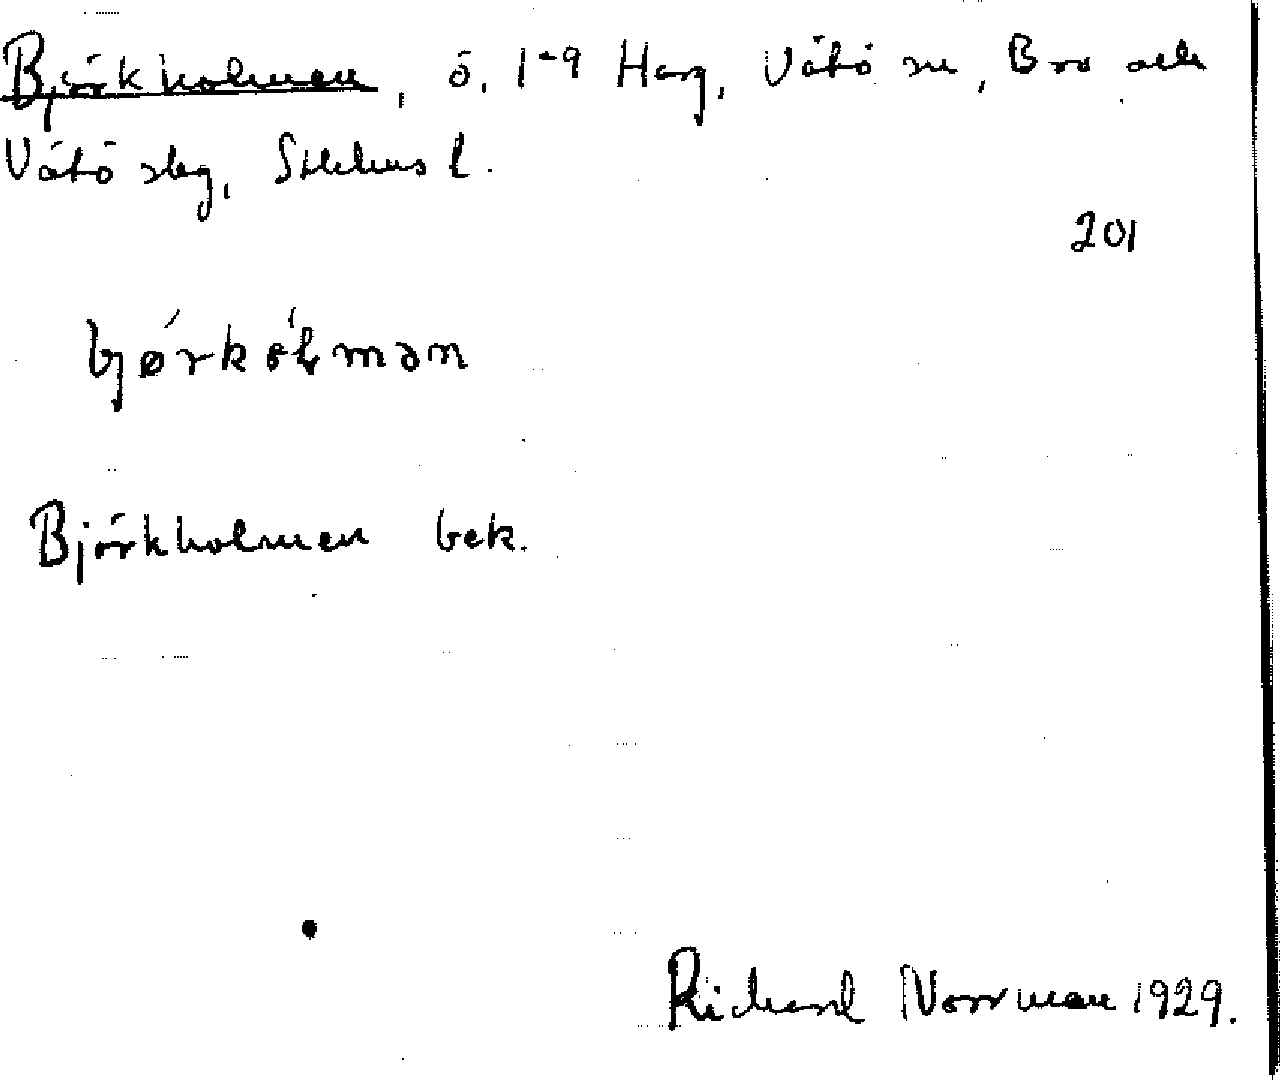 Björkholmen, ö, 1-9 Harg, Vätö sn, Bro och
Vätö slg, Sthlms l.
201
bjørkɵlmən
Björkholmen bek.
Richard Norrman 1929.